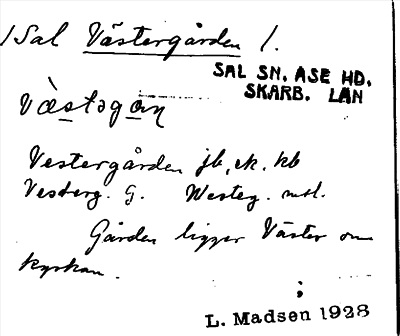 /Sal Västergården /.
SAL SN. ASE HD.
SKARB. LÄN
Vestergården jb, ek. kb
Vesterg. G. Westeg.
Gården ligger Väster om
kyrkan.
L. Madsen 1928